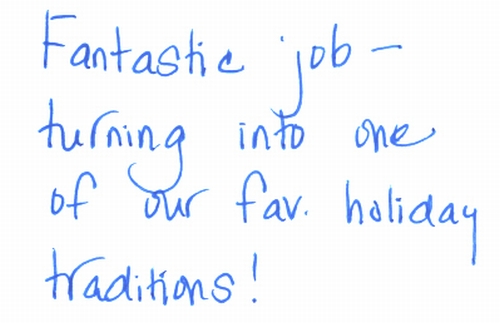 Fantastic job –
turning into one
of our fav. holiday
traditions!